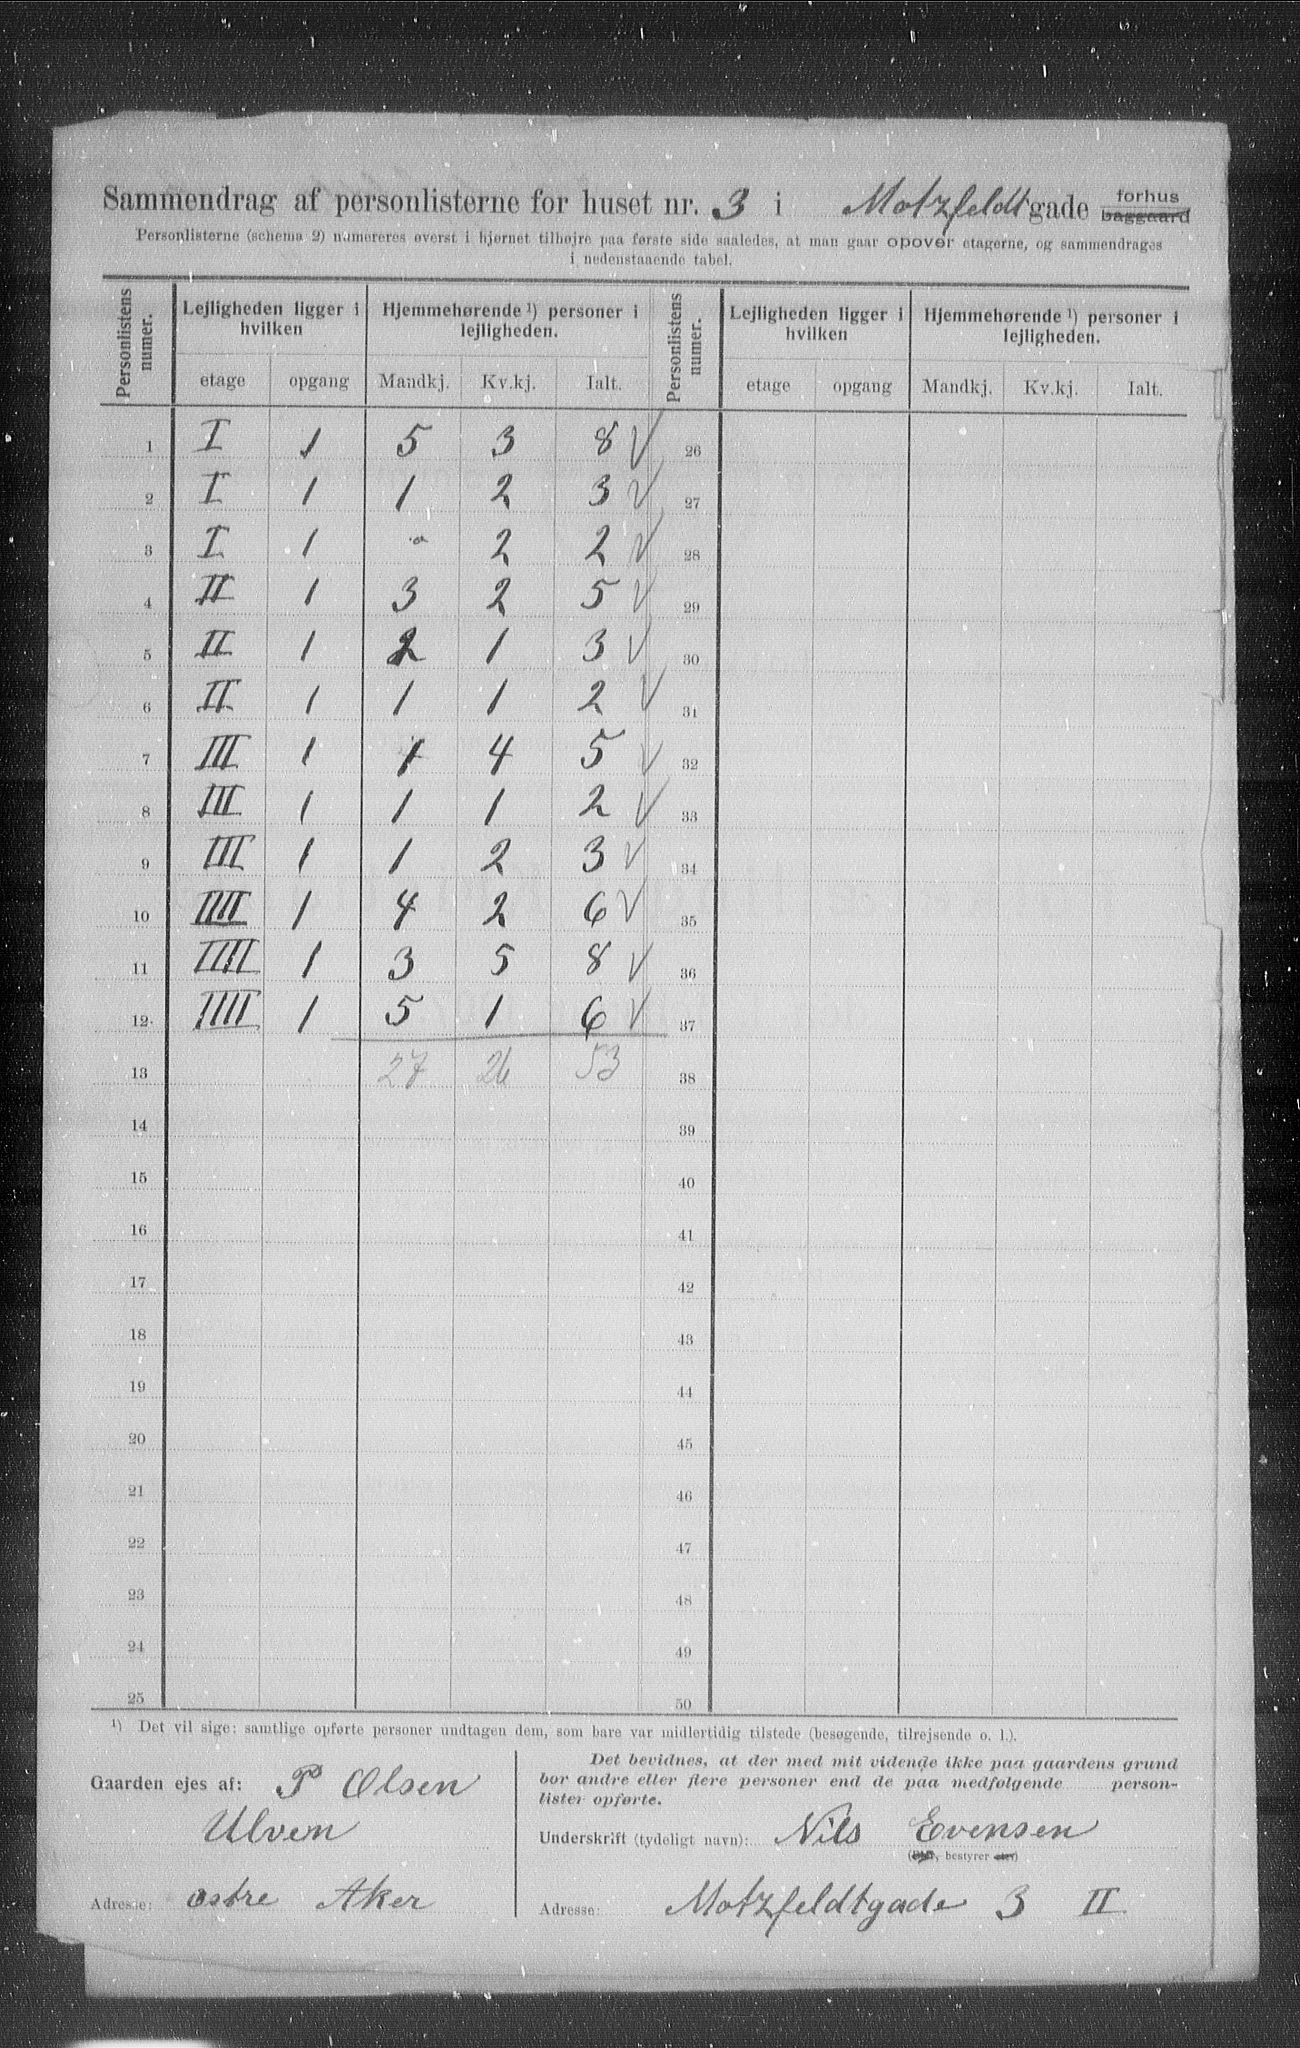 Sammendrag af personlisterne for huset nr. 3 i Motzfeldtgade forhus baggaard
Personlisterne (schema 2) numereres øverst i hjørnet tilhøjre paa første side saaledes, at man gaar opover etagerne, og sammendrages
i nedenstaaende tabel.
Personlistens numer. Lejligheden ligger i hvilken Hjemmehørende ¹) personer i lejligheden. Personlistens numer. Lejligheden ligger i hvilken Hjemmehørende ¹) personer i lejligheden.
etage opgang Mandkj. Kv.kj. Ialt. etage opgang Mandkj. Kv.kj. Ialt.
1 I 1 5 3 8 √ 26
2 I 1 1 2 3 √ 27
3 I 1 o 2 2 √ 28
4 II 1 3 2 5 √ 29
5 II 1 2 1 3 √ 30
6 II 1 1 1 2 √ 31
7 III 1 1 4 5 √ 32
8 III 1 1 1 2 √ 33
9 III 1 1 2 3 √ 34
10 IIII 1 4 2 6 √ 35
11 IIII 1 3 5 8 √ 36
12 IIII 1 5 1 6 √ 37
13 27 26 53 38
14 39
15 40
16 41
17 42
18 43
19 44
20 45
21 46
22 47
23 48
24 49
25 50
¹) Det vil sige: samtlige opførte personer undtagen dem, som bare var midlertidig tilstede (besøgende, tilrejsende o. l.).
Gaarden ejes af: P Olsen
Ulven
Adresse: østre Aker
Det bevidnes, at der med mit vidende ikke paa gaardens grund
bor andre eller flere personer end de paa medfølgende person-
lister opførte.
Underskrift (tydeligt navn): Nils Evensen
(Ejer, bestyrer eller)
Adresse: Motzfeldtgade 3 II